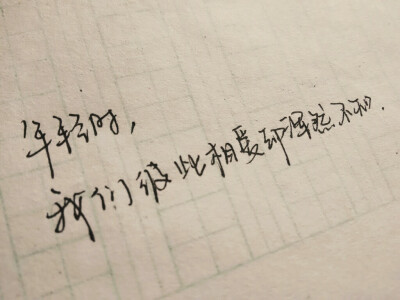 年轻时，
我们彼此相爱却浑然不知.